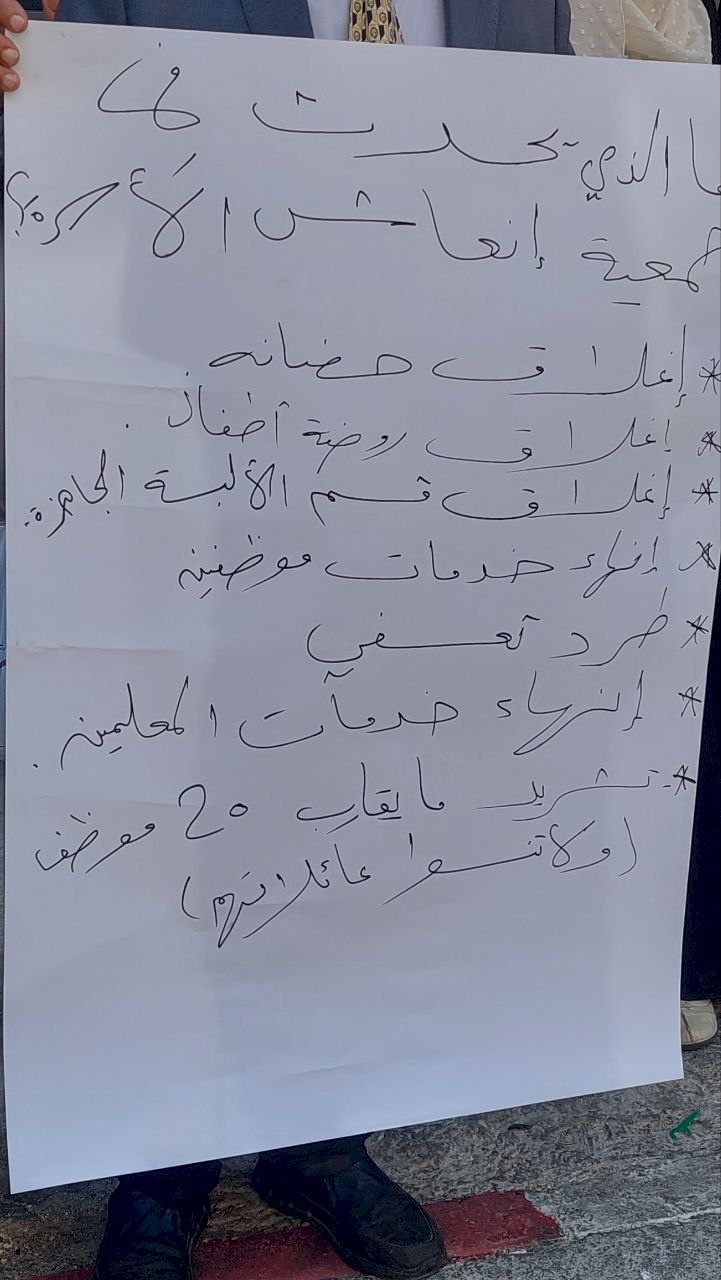 ما الذي يحدث في
جمعية إنعاش الأسرة؟
* إغلاق حضانه
* إغلاق روضة أطفال .
* إغلاق قسم الألبسة الجاهزة .
* إنهاء خدمات موظفين
* طرد تعسفي
* إنهاء خدمات المعلمين .
* تشريد ما يقارب 20 موظف
(ولا تنسوا عائلاتهم)